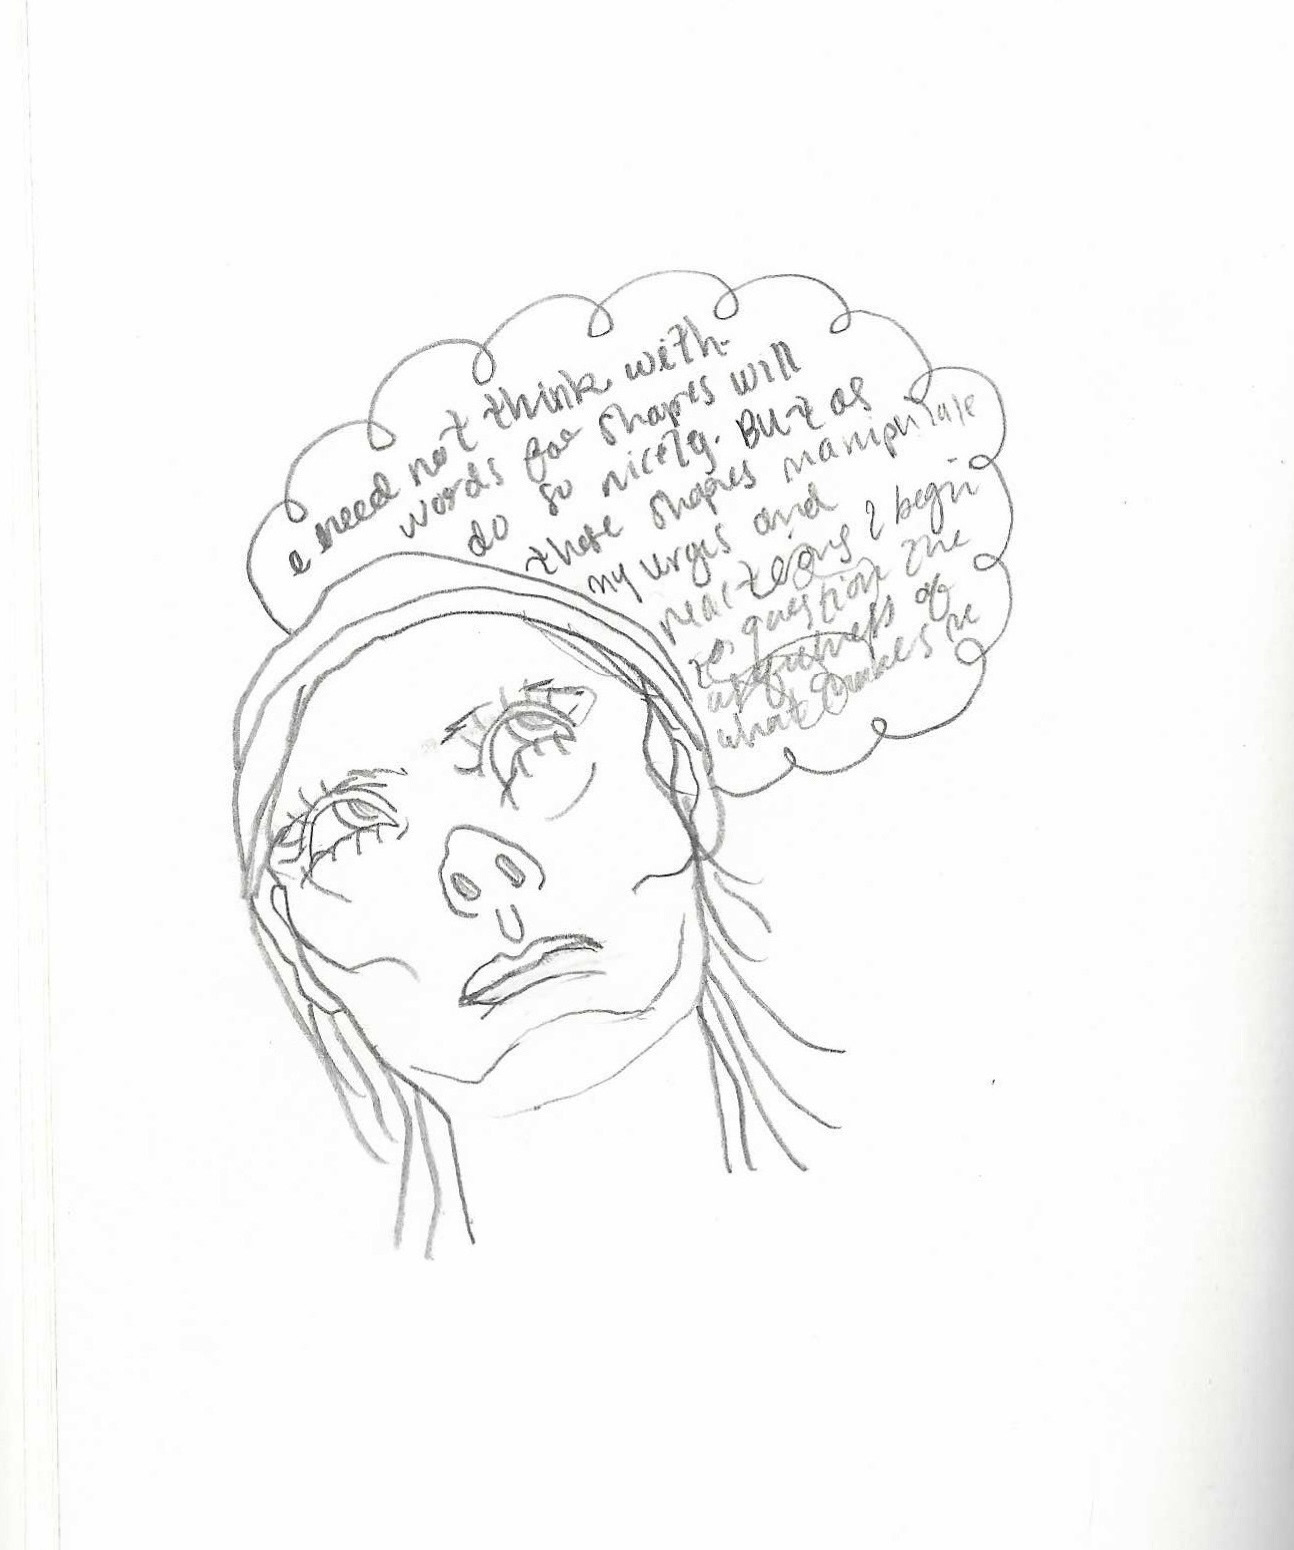 I need not think with
words for shapes will
do so nicely. But as
these shapes manipulate
my urges and
reactions I begin
to question the
of
what makes me